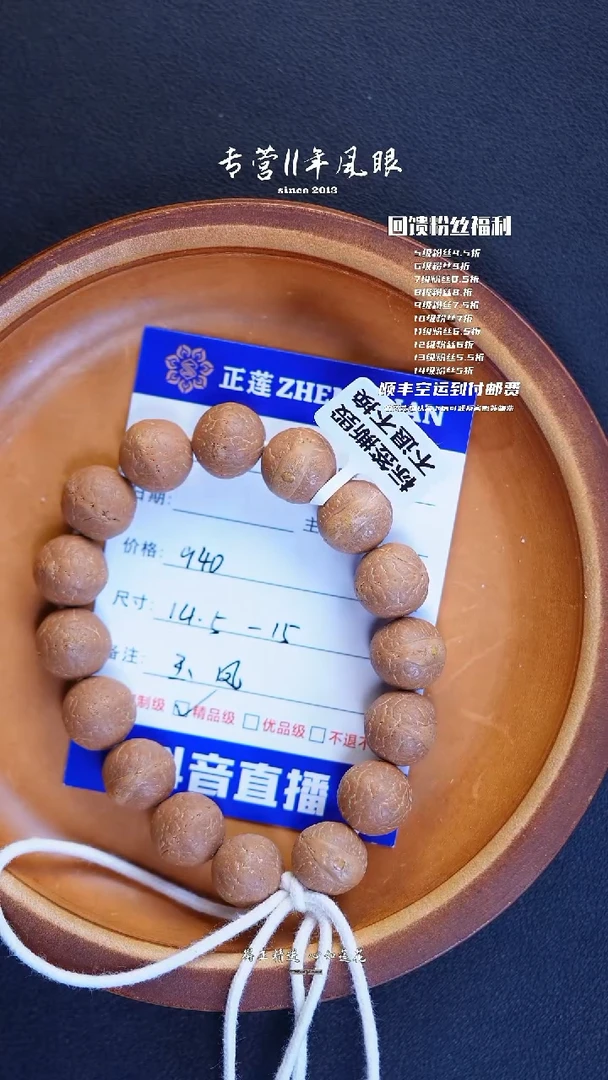 专营11年凤眼
since 2013
回馈粉丝福利
5级粉丝9.5折
6级粉丝9折
7级粉丝8.5折
8级粉丝8.折
9级粉丝7.5折
10级粉丝7折
11级粉丝6.5折
12级粉丝6折
13级粉丝5.5折
14级粉丝5折
顺丰空运到付邮费
正莲 ZHE
AN
标签撕毁
不退不换
日期:
主
价格: 940
尺寸: 14.5-15
备注: 玉凤
制级 精品级 优品级 不退不
抖音直播